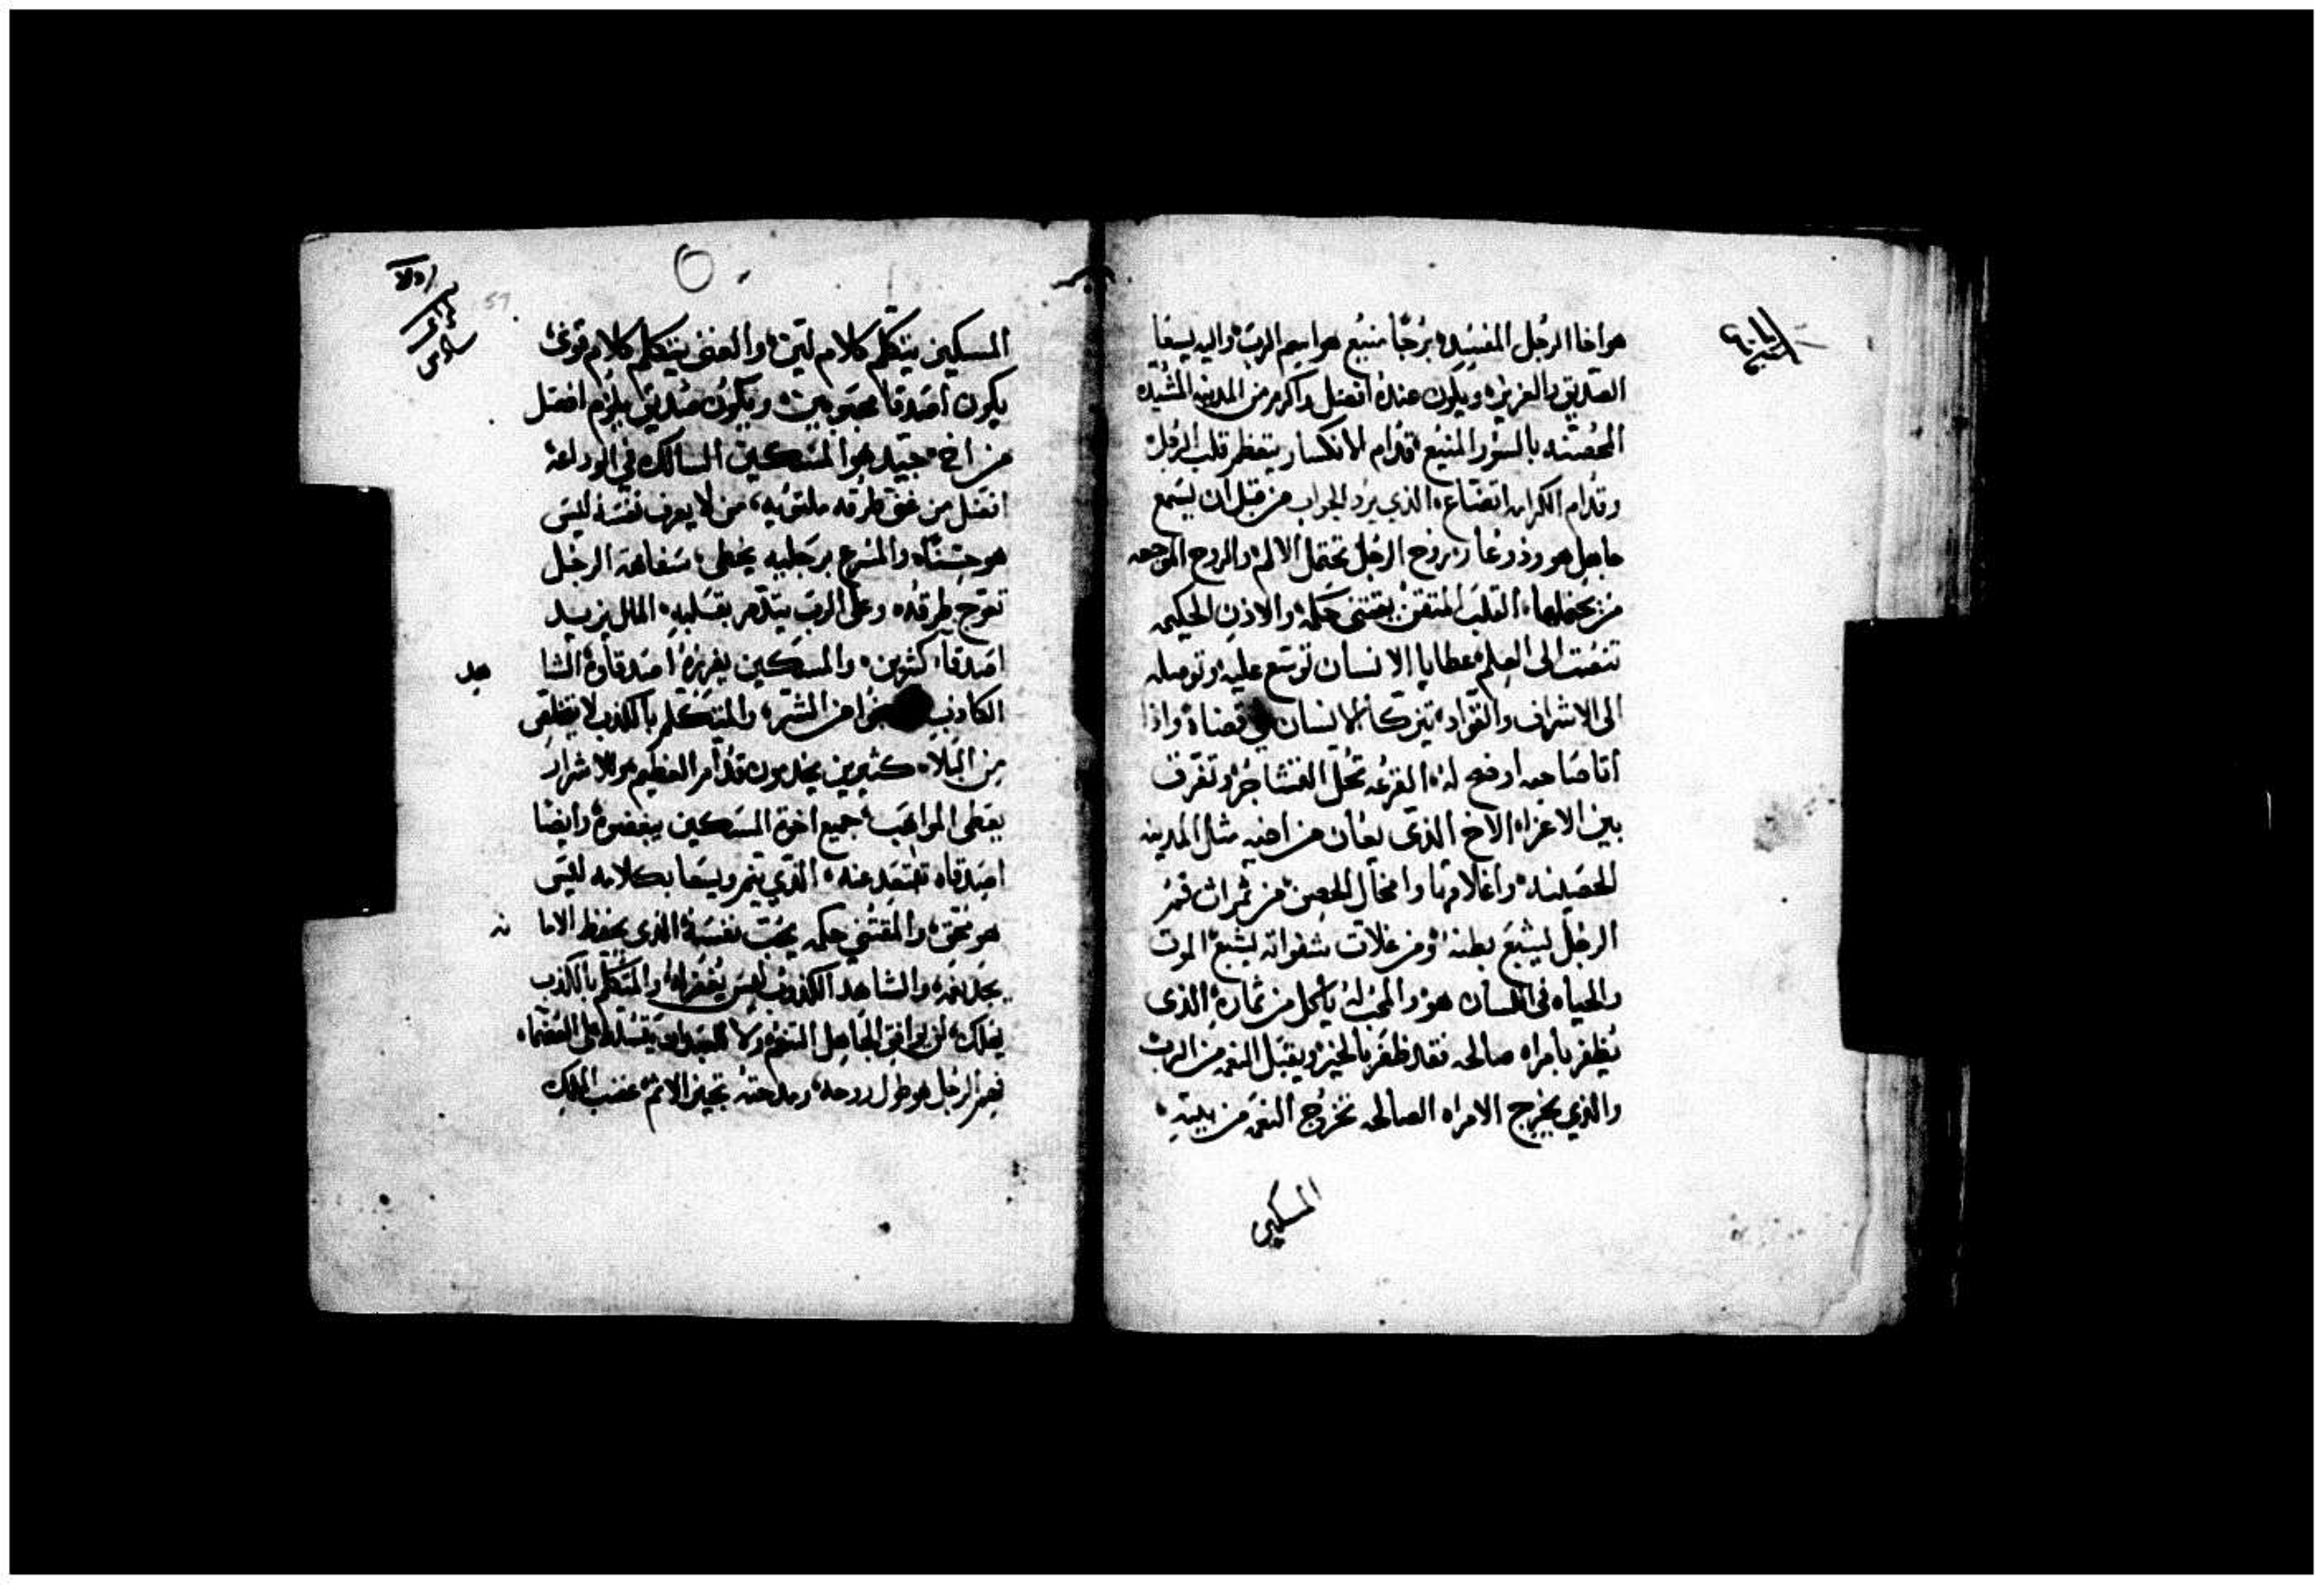 هو اخا الرجل المفسد برجا منيع هو اسم الرب واليه يسعا
الصديق بالعزيزه ويكون عنده افضل واكرم من المدينه المشيده
المحصنه بالسور المنيع قدام الانكسار يتعظم قلب الرجل
وقدام الكرامه اتضاع الذي يرد الجواب من قبل ان يسمع
جاهل هو وذو عار روح الرجل تحتمل الالم والروح الموجعه
من يحملها القلب المتقن يقتني حكمه والاذن الحكيمه
تنصت الى العلم عطايا الانسان توسع عليه وتوصله
الى الاشراف والقواد يتزكا الانسان في قضاة واذا
اتا صاحبه اوضح له القرعه تحل التشاجر وتفرق
بين الاعزاء الاخ الذي يعان من اخيه مثال المدينه
الحصينه واغلاقها وامخال الحصن من ثمرات فم
الرجل ليشبع بطنه ومن غلات شفواته يشبع الموت
والحياه في اللسان هو والمحب له ياكل من ثماره الذي
يظفر بامراه صالحه فقد ظفر بالخير ويقبل النعمه من الرب
والذي يخرج الامراه الصالحه تخرج النعمه من بيته
المسكين
المسكين يتكلم كلام لين والغني يتكلم كلام قوي
يكون اصدقا محبوبين ويكون صديق يلزم افضل
من اخ جيد هو المسكين السالك في الوداعه
افضل من غني طرقه ملتويه من لا يعرف نفسه ليس
هو حسنا والمسرع برجليه يخطي سفاهة الرجل
تعوج طرقه وعلى الرب يتذمر بقلبه المال يزيد
اصدقا كثيرين والمسكين يفرزه اصدقاوه الشا
هد
الكاذب من الشر والمتكلم بالكذب لا يتخلص
من البلاء كثيرين يخدمون قدام العظيم والاشرار
يعطي المواهب جميع اخوة المسكين يبغضوه وايضا
اصدقاه تبتعد عنه الذي ينمر ويسعا بكلامه ليس
هو نقي والمقتني حكمه يحب نفسه الذي يحفظ الاما
نه
يجد نعمه والشاهد الكذوب ليس يغفر له والمتكلم بالكذب
يهلك لن يوافق الجاهل التنعم ولا للعبد ان يتسلط على العظماء
فهم الرجل هو طول روحه ومدحته تجيز الاثم غضب الملك